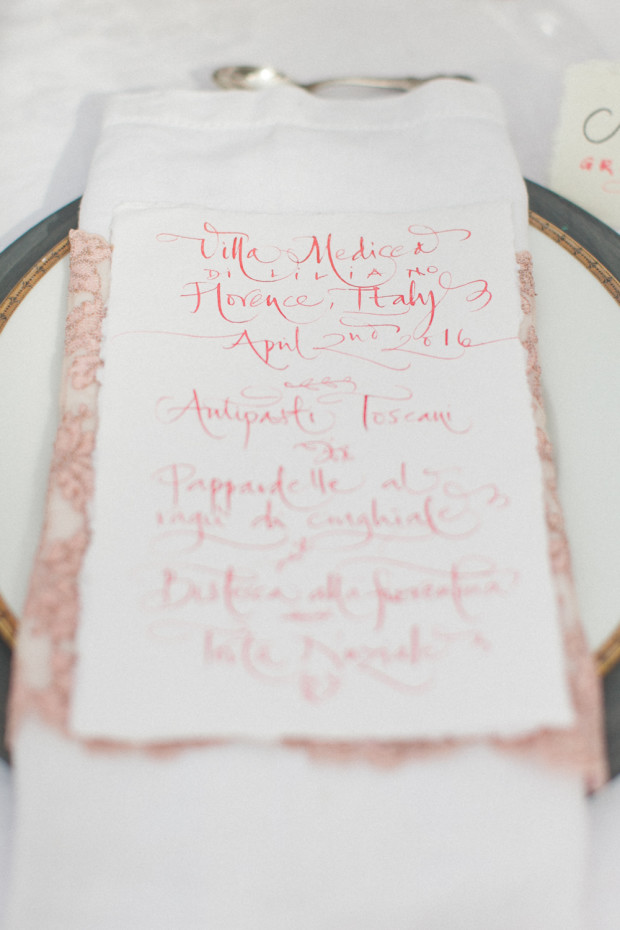 Villa Medicea
DI LILIANO
Florence, Italy
April 2nd 2016
Antipasti Toscani
Pappardelle al
ragù di cinghiale
Bistecca alla fiorentina
Torta Nuziale
C
GR